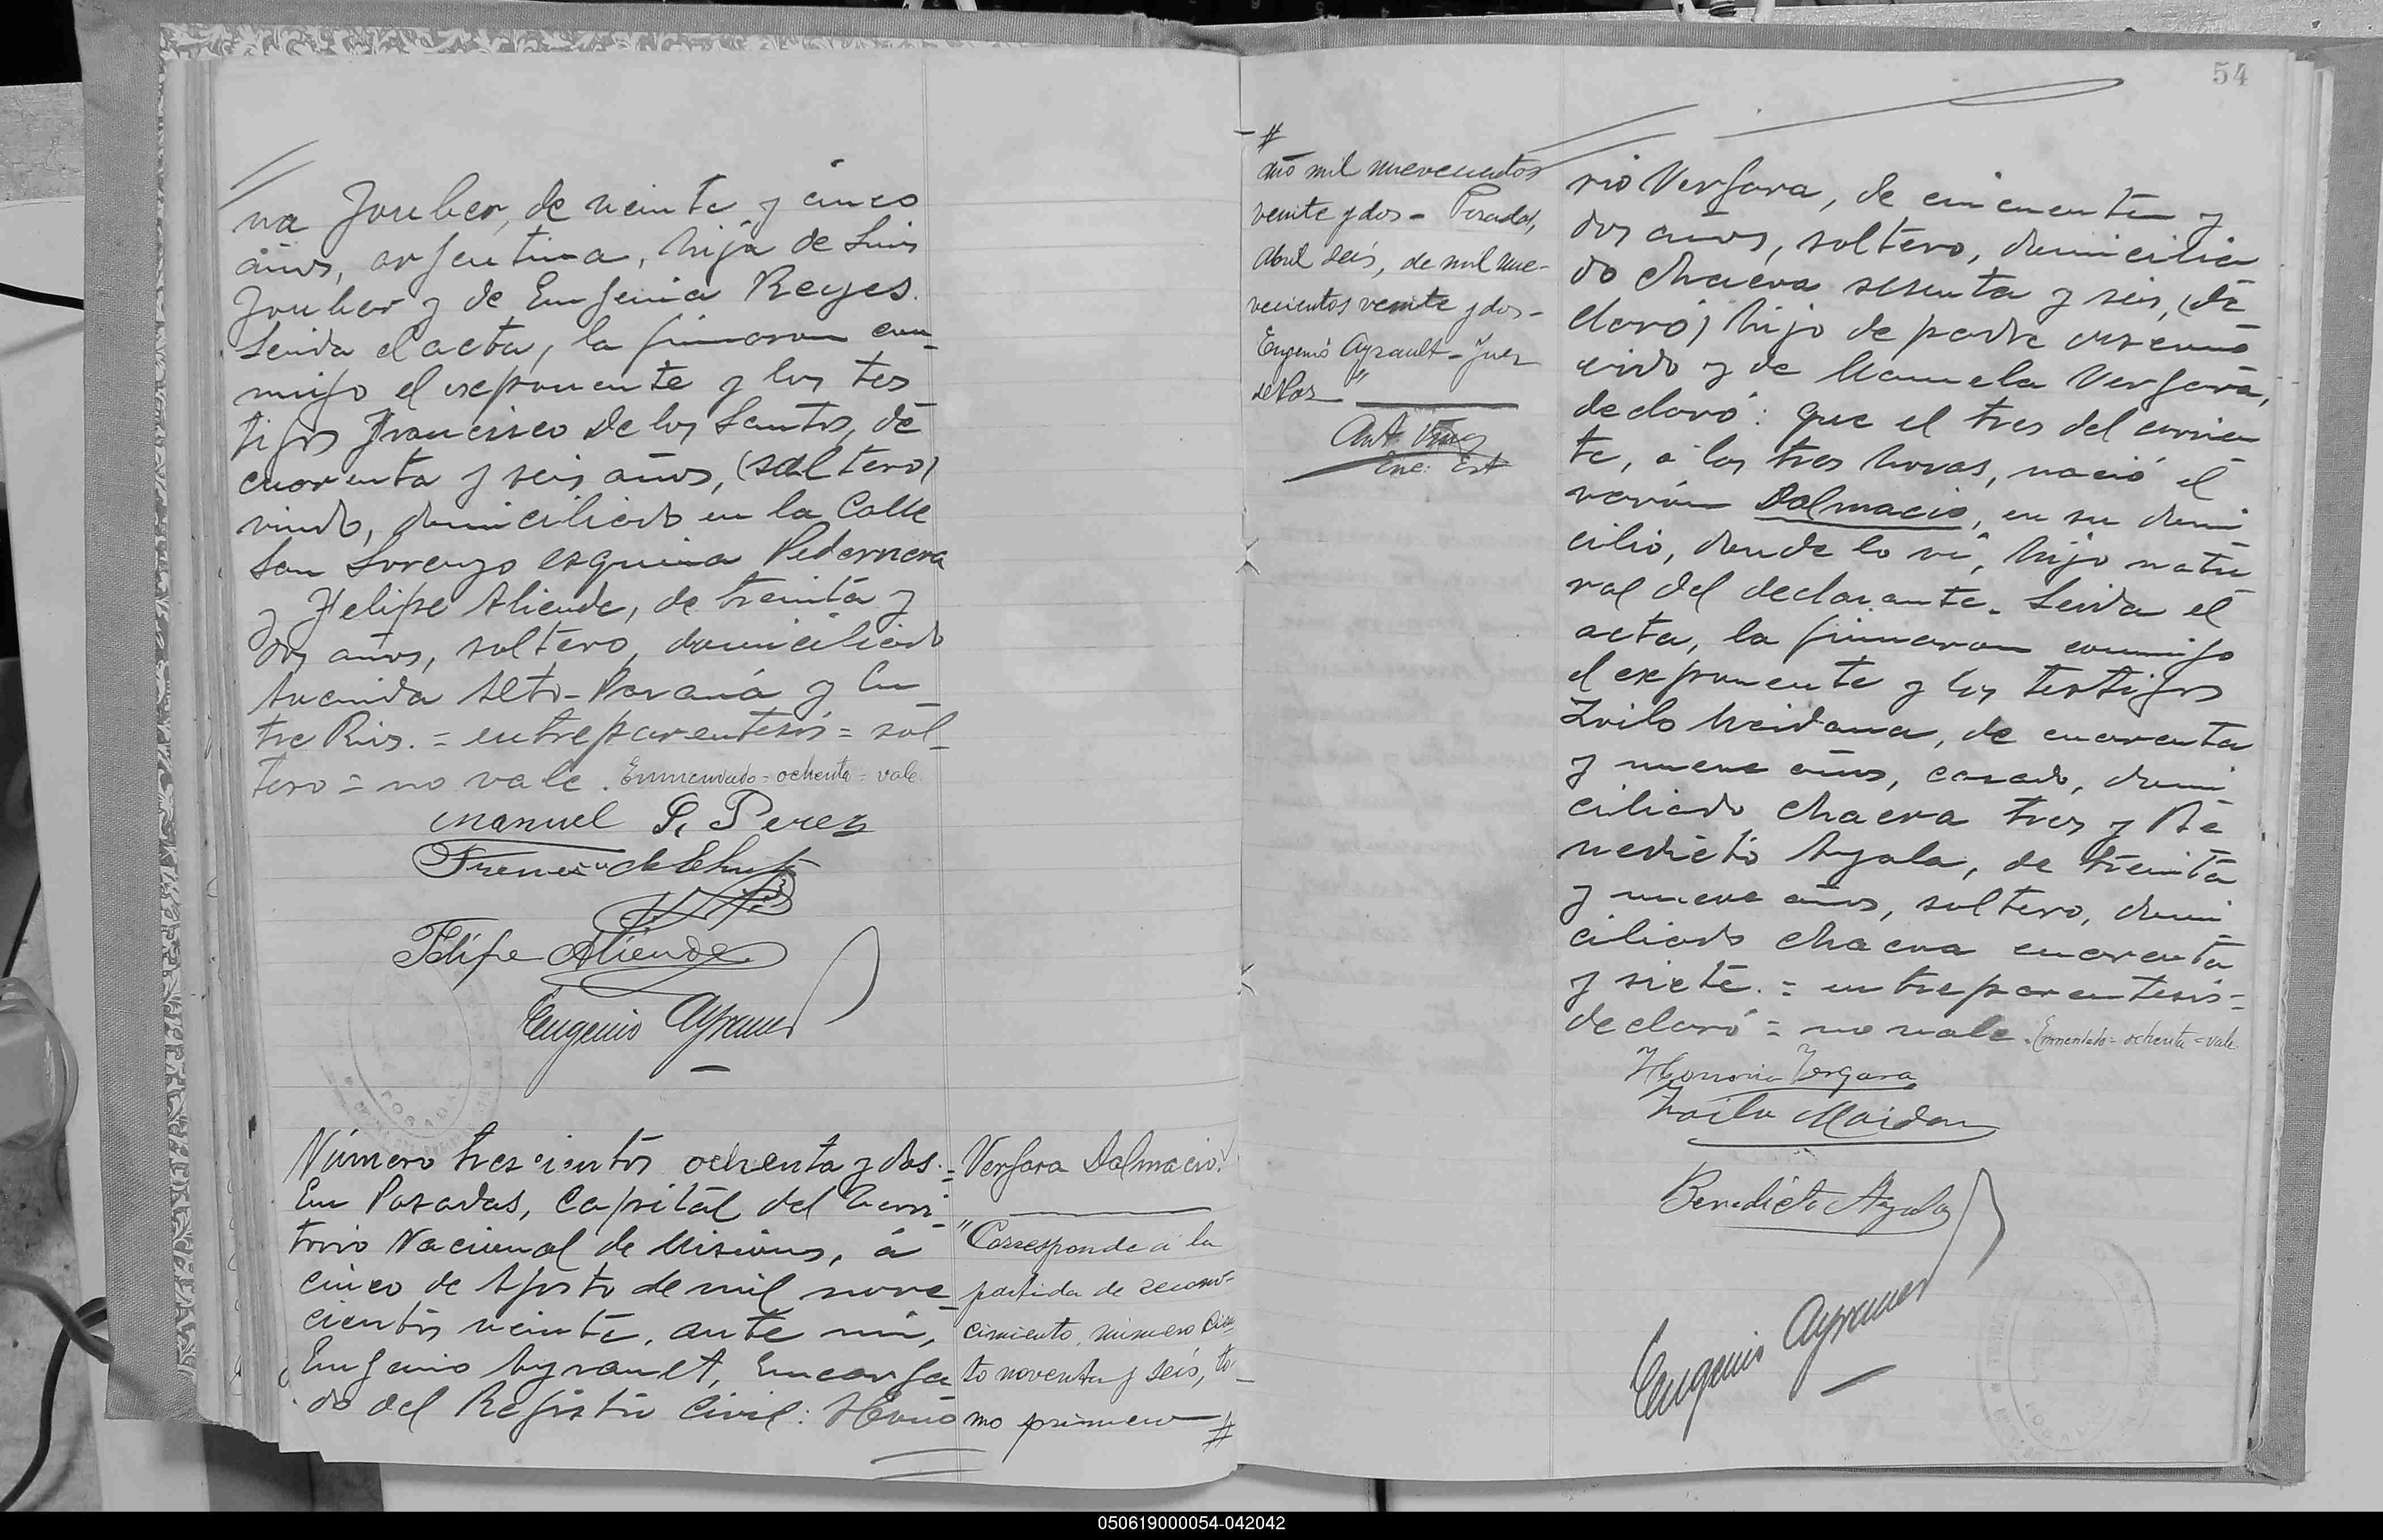 na Jouber, de veinte y cinco
años, argentina, hija de Luis
Jouber y de Eugenia Reyes.
Leida el acta, la firmaron con-
migo el exponente y los tes
tigos Francisco de los Santos, de
cuarenta y seis años, (soltero)
viudo, domiciliado en la Calle
San Lorenzo esquina Pedernera
y Felipe Aliende, de treinta y
dos años, soltero, domiciliado
Avenida Alto-Paraná y En
tre Rios. = entreparentesis = sol-
tero = no vale. Enmendado = ochenta = vale.
Manuel P. Perez
Felipe Aliende
Eugenio Ayrault
Número trescientos ochenta y dos. =
En Posadas, Capital del Terri-
torio Nacional de Misiones, á
cinco de Agosto de mil nove-
cientos veinte, ante mi,
Eugenio Ayrault, Encarga
do del Registro Civil: Hono
Vergara Dalmacio.
"Corresponde á la
partida de recono-
cimiento, número cien-
to noventa y seis, to-
mo primero #
54
#
año mil novecientos
veinte y dos - Posadas,
Abril seis, de mil nue-
vecientos veinte y dos -
Eugenio Ayrault - Juez
de Paz "
rio Vergara, de cincuenta y
dos años, soltero, domicilia
do chacra sesenta y seis, (de
claró) hijo de padre descono
cido y de Manuela Vergara,
declaró: que el tres del corrien
te, á las tres horas, nació el
varón Dalmacio, en su domi-
cilio, donde lo vi, hijo natu
ral del declarante. Leida el
acta, la firmaron conmigo
el exponente y los testigos
Zoilo Maidana, de cuarenta
y nueve años, casado, domi
ciliado chacra tres y Be
nedicto Ayala, de treinta
y nueve años, soltero, domi-
ciliado chacra cuarenta
y siete. = entreparentesis =
declaró = no vale. Enmendado = ochenta = vale.
Honorio Vergara
Zoilo Maidana
Benedicto Ayala
Eugenio Ayrault
050619000054-042042